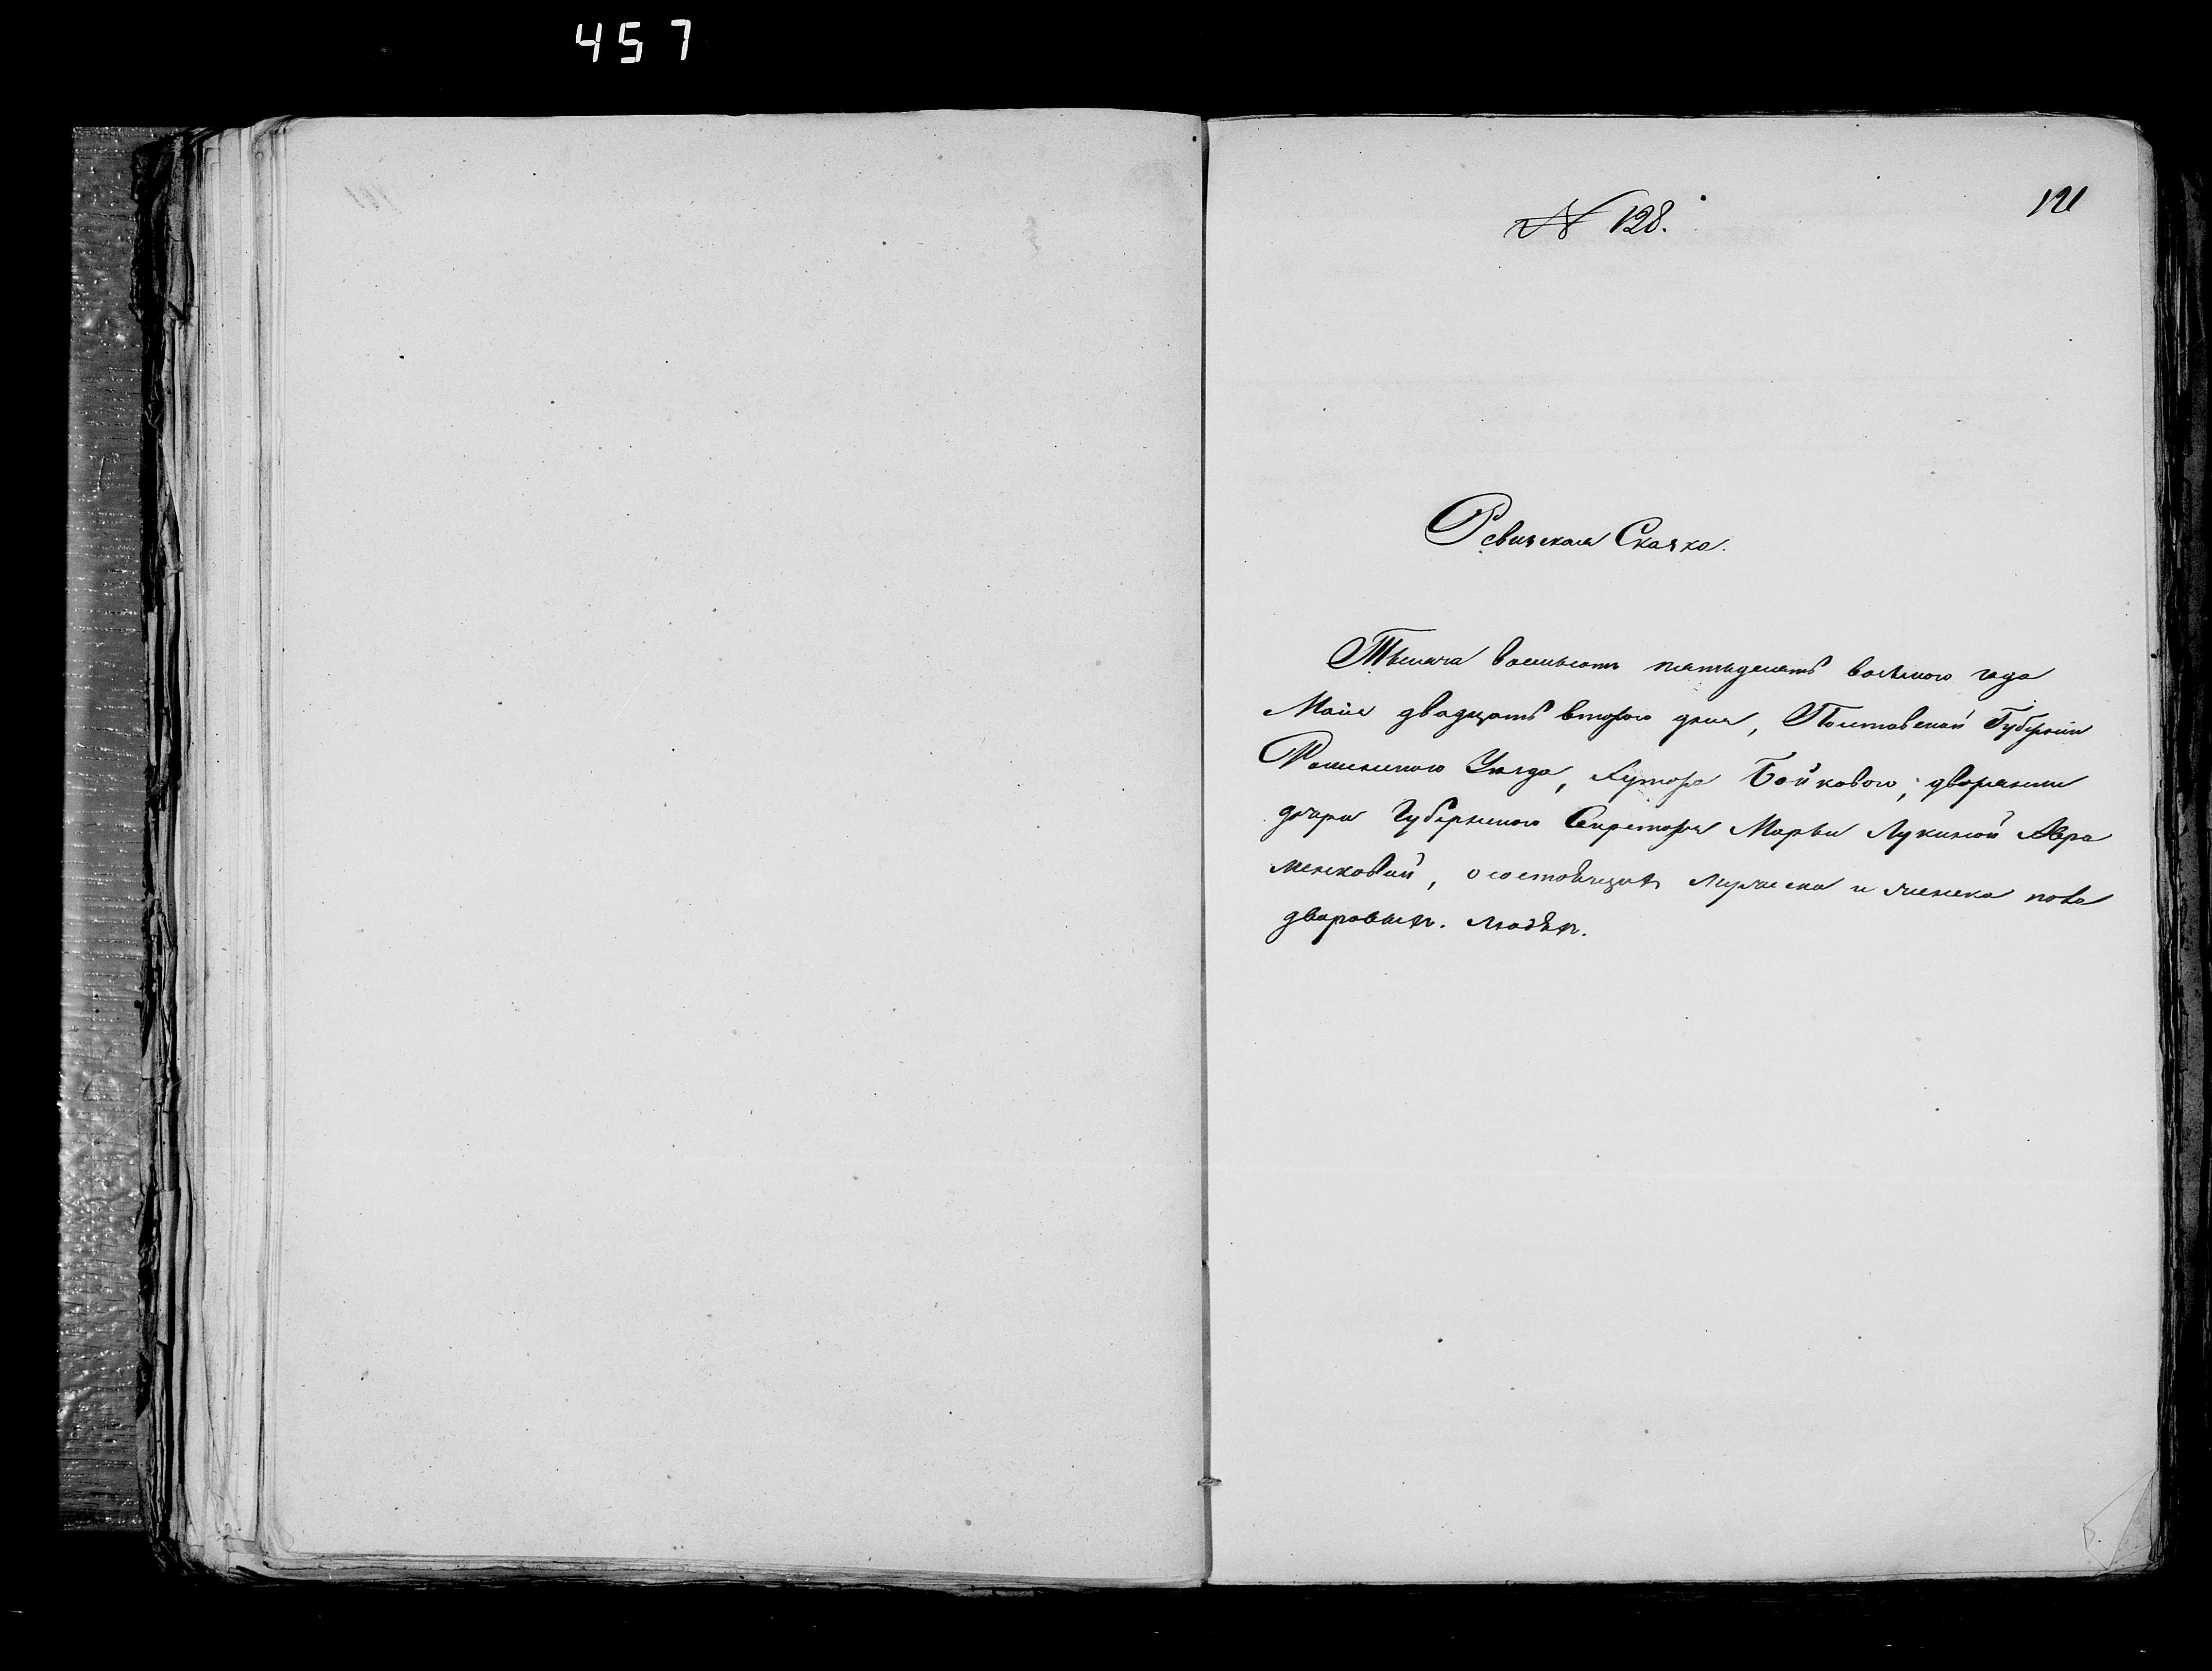 457
121
№ 128.
Ревизская Сказка.
Тысяча восемьсотъ пятьдесятъ восьмого года
Маія двадцать второго дня, Полтавской Губерніи
Роменского Уезда, хутора Бойкового, дворянки
дочери Губернского Секретаря Марьи Лукиной Авра
менковой, о состоящихъ мужеска и женска пола
дворовыхъ людѣхъ.